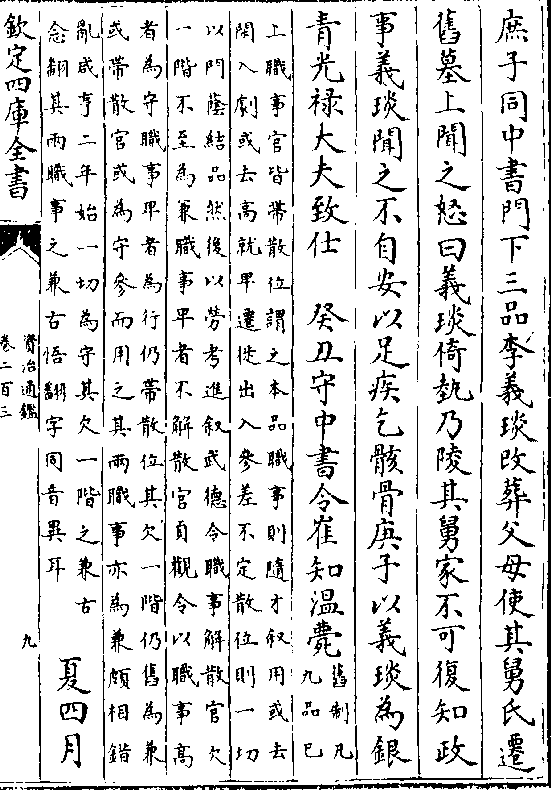 庶子同中書門下三品李義琰改葬父母使其舅氏遷
舊墓上聞之怒曰義琰倚埶乃陵其舅家不可復知政
事義琰聞之不自安以足疾乞骸骨庚子以義琰為銀
青光禄大夫致仕　癸丑守中書令崔知温薨
舊制凡
九品已
上職事官皆帶散位謂之本品職事則隨才叙用或去
閑入劇或去高就卑遷徙出入參差不定散位則一切
以門蔭結品然後以勞考進叙武德令職事解散官欠
一階不至為兼職事卑者不解散官貞觀令以職事高
者為守職事卑者為行仍帶散位其欠一階仍舊為兼
或帶散官或為守參而用之其兩職事亦為兼頗相錯
亂咸亨二年始一切為守其欠一階之兼古
念翻其兩職事之兼古恬翻字同音異耳
夏四月
欽定四庫全書
資治通鑑
卷二百三
九